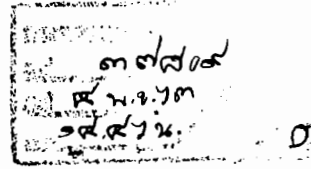 ๓๗๘๐๙
๕ พ.ย.๖๓
๑๕.๔๖ น.